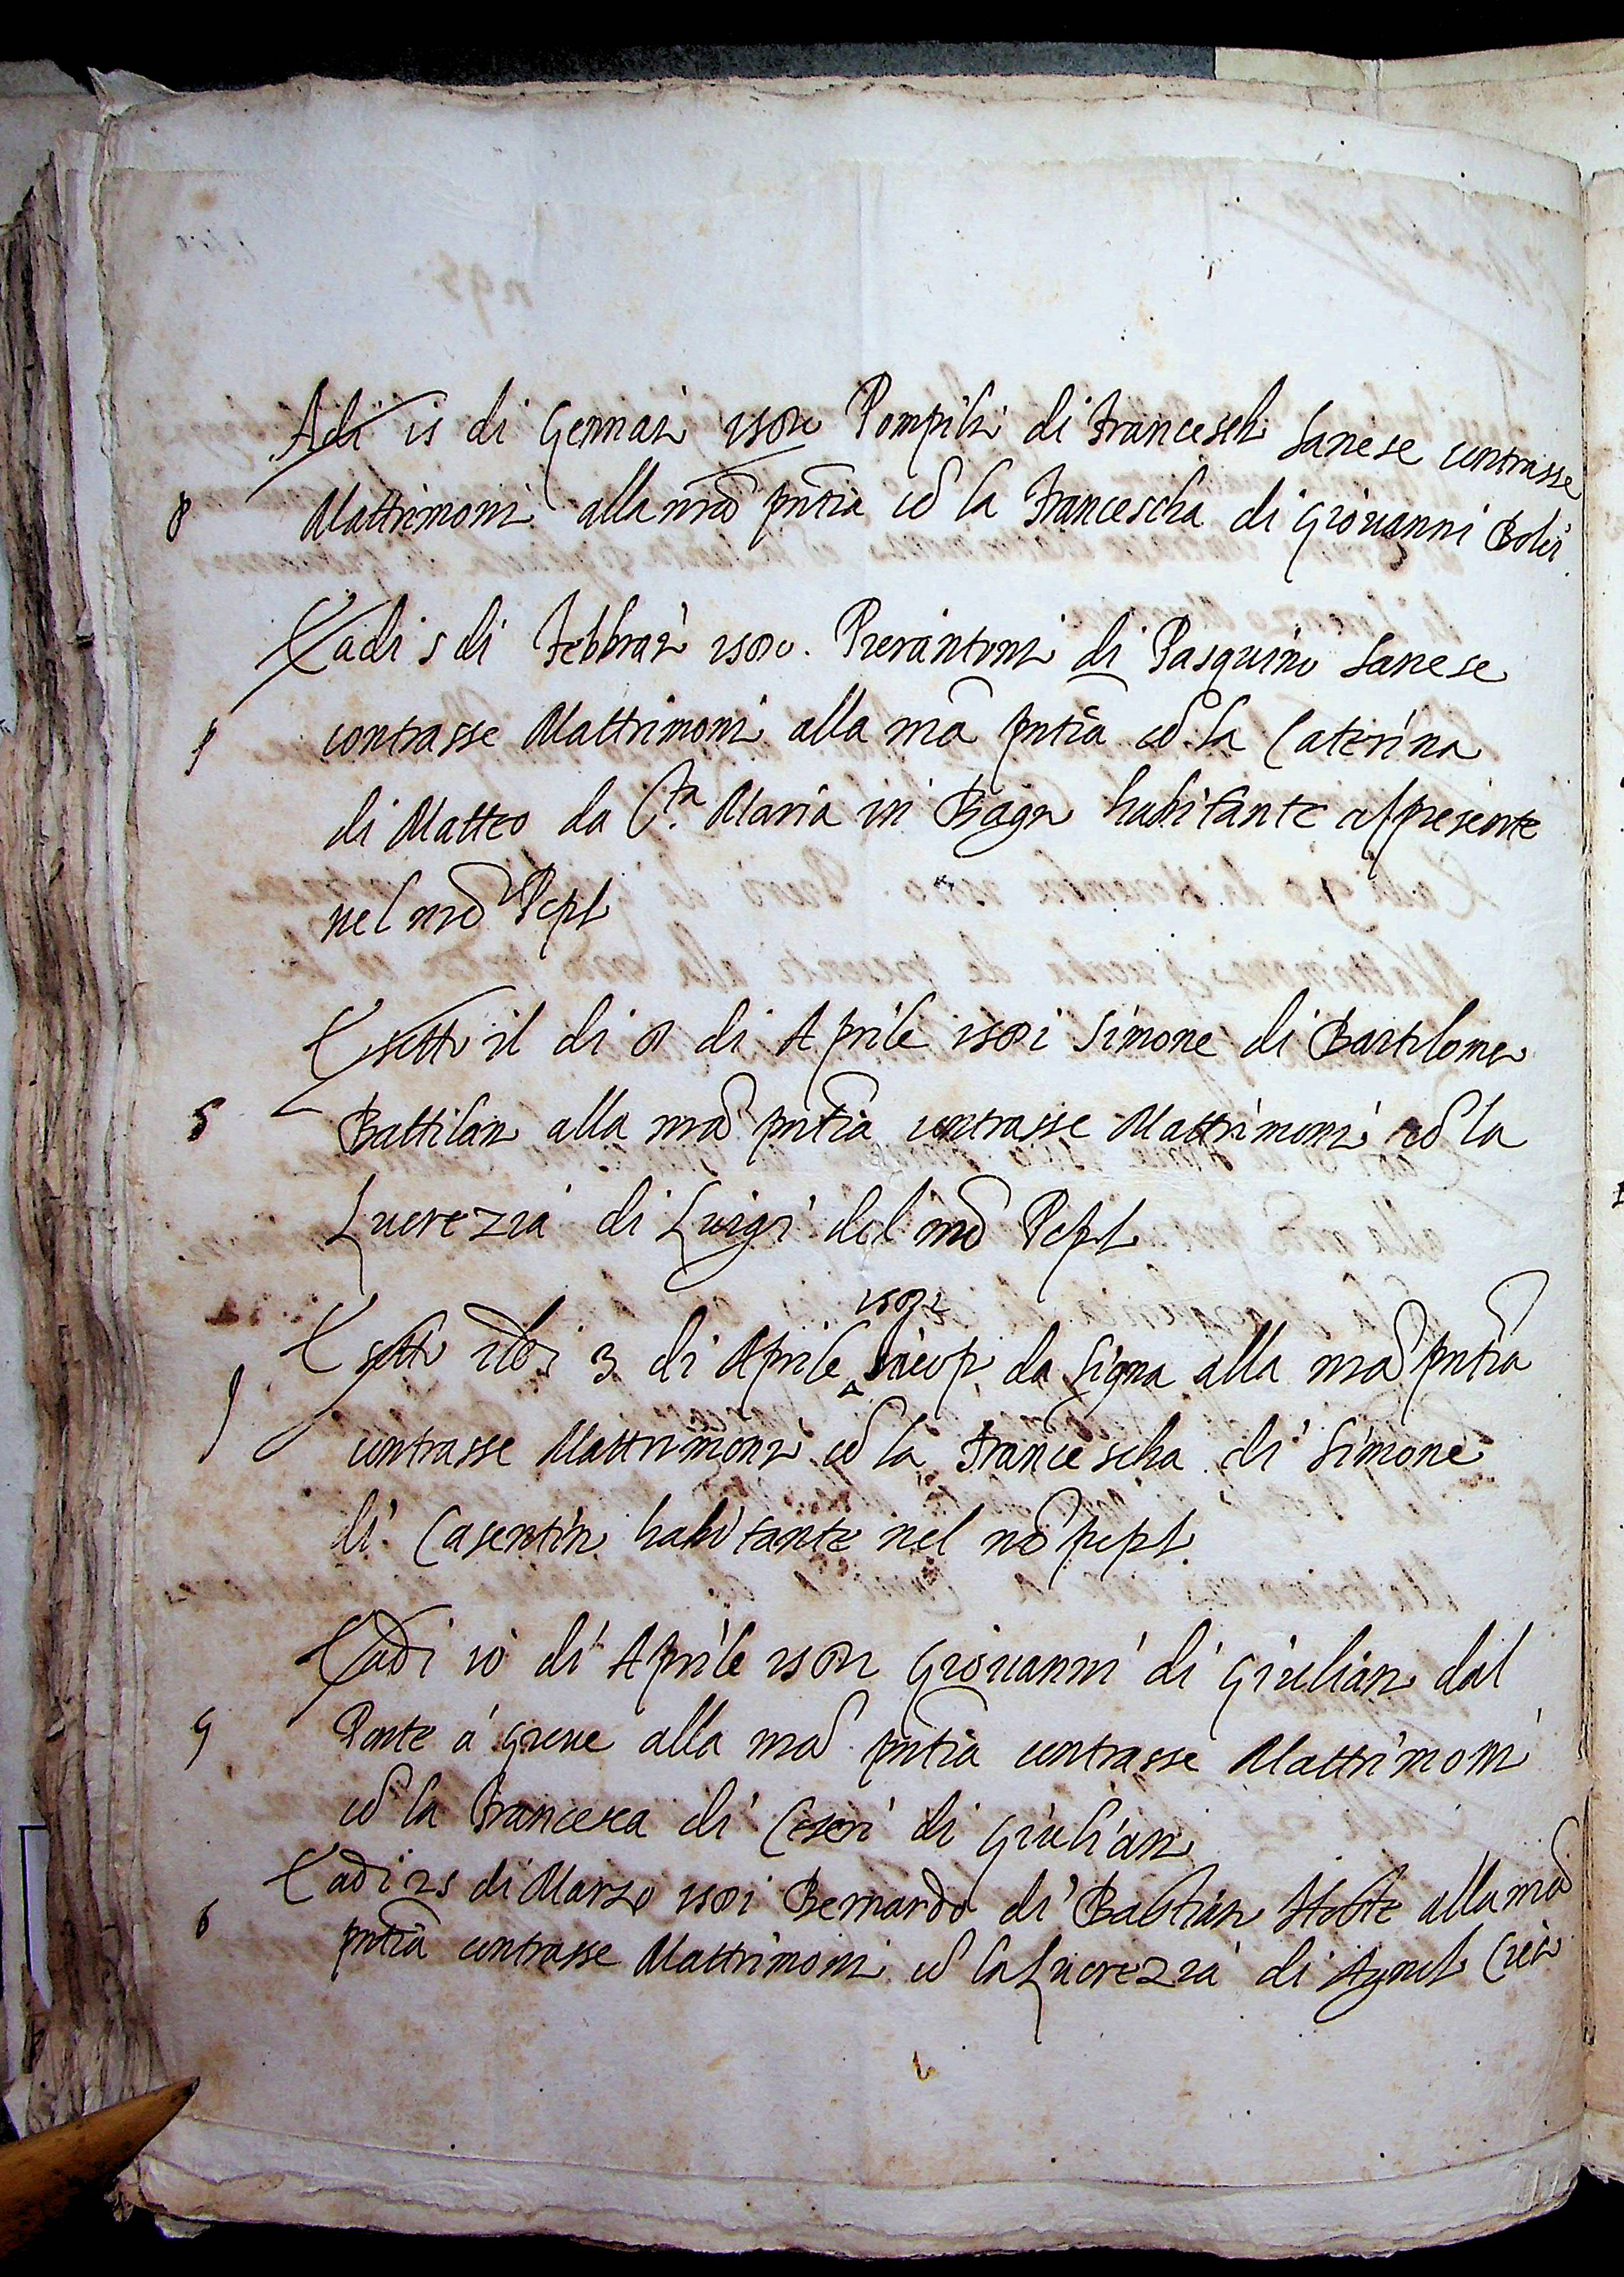 Adi 15 di Gennaio 1580 Pompilio di Francescho Sanese contrasse
8 Mattrimonio alla mia pñtia cõ la Francescha di Giouanni
E adi 5 di Febbraio 1580. Pierantonio di Pasquino Sanese
9 contrasse Mattrimonio alla mia pñtia cõ la Caterina
di Matteo da Sta. Maria in Bagno habitante al presente
nel mio Popolo
E sotto il di 8 di Aprile 1581 Simone di Bartolomeo
5 Battilano alla mia pñtia contrasse Mattrimonio cõ la
Lucrezia di Luigi del mio Popolo
1581
E sotto il di 3 di Aprile Iacopo da Signa alla mia pñtia
contrasse Mattrimonio cõ la Francescha di Simone
di Casentino habitante nel mio popolo
E adi 10 di Aprile 1581 Giouanni di Giuliano dal
9 Ponte á Greue alla mia pñtia contrasse Mattrimonio
cõ la Francesca di Ceseri di Giuliano
E adi 25 di Marzo 1581 Bernardo di Bastiano Hoste alla mia
6 pñtia contrasse Mattrimonio cõ la Lucrezia di Agnolo